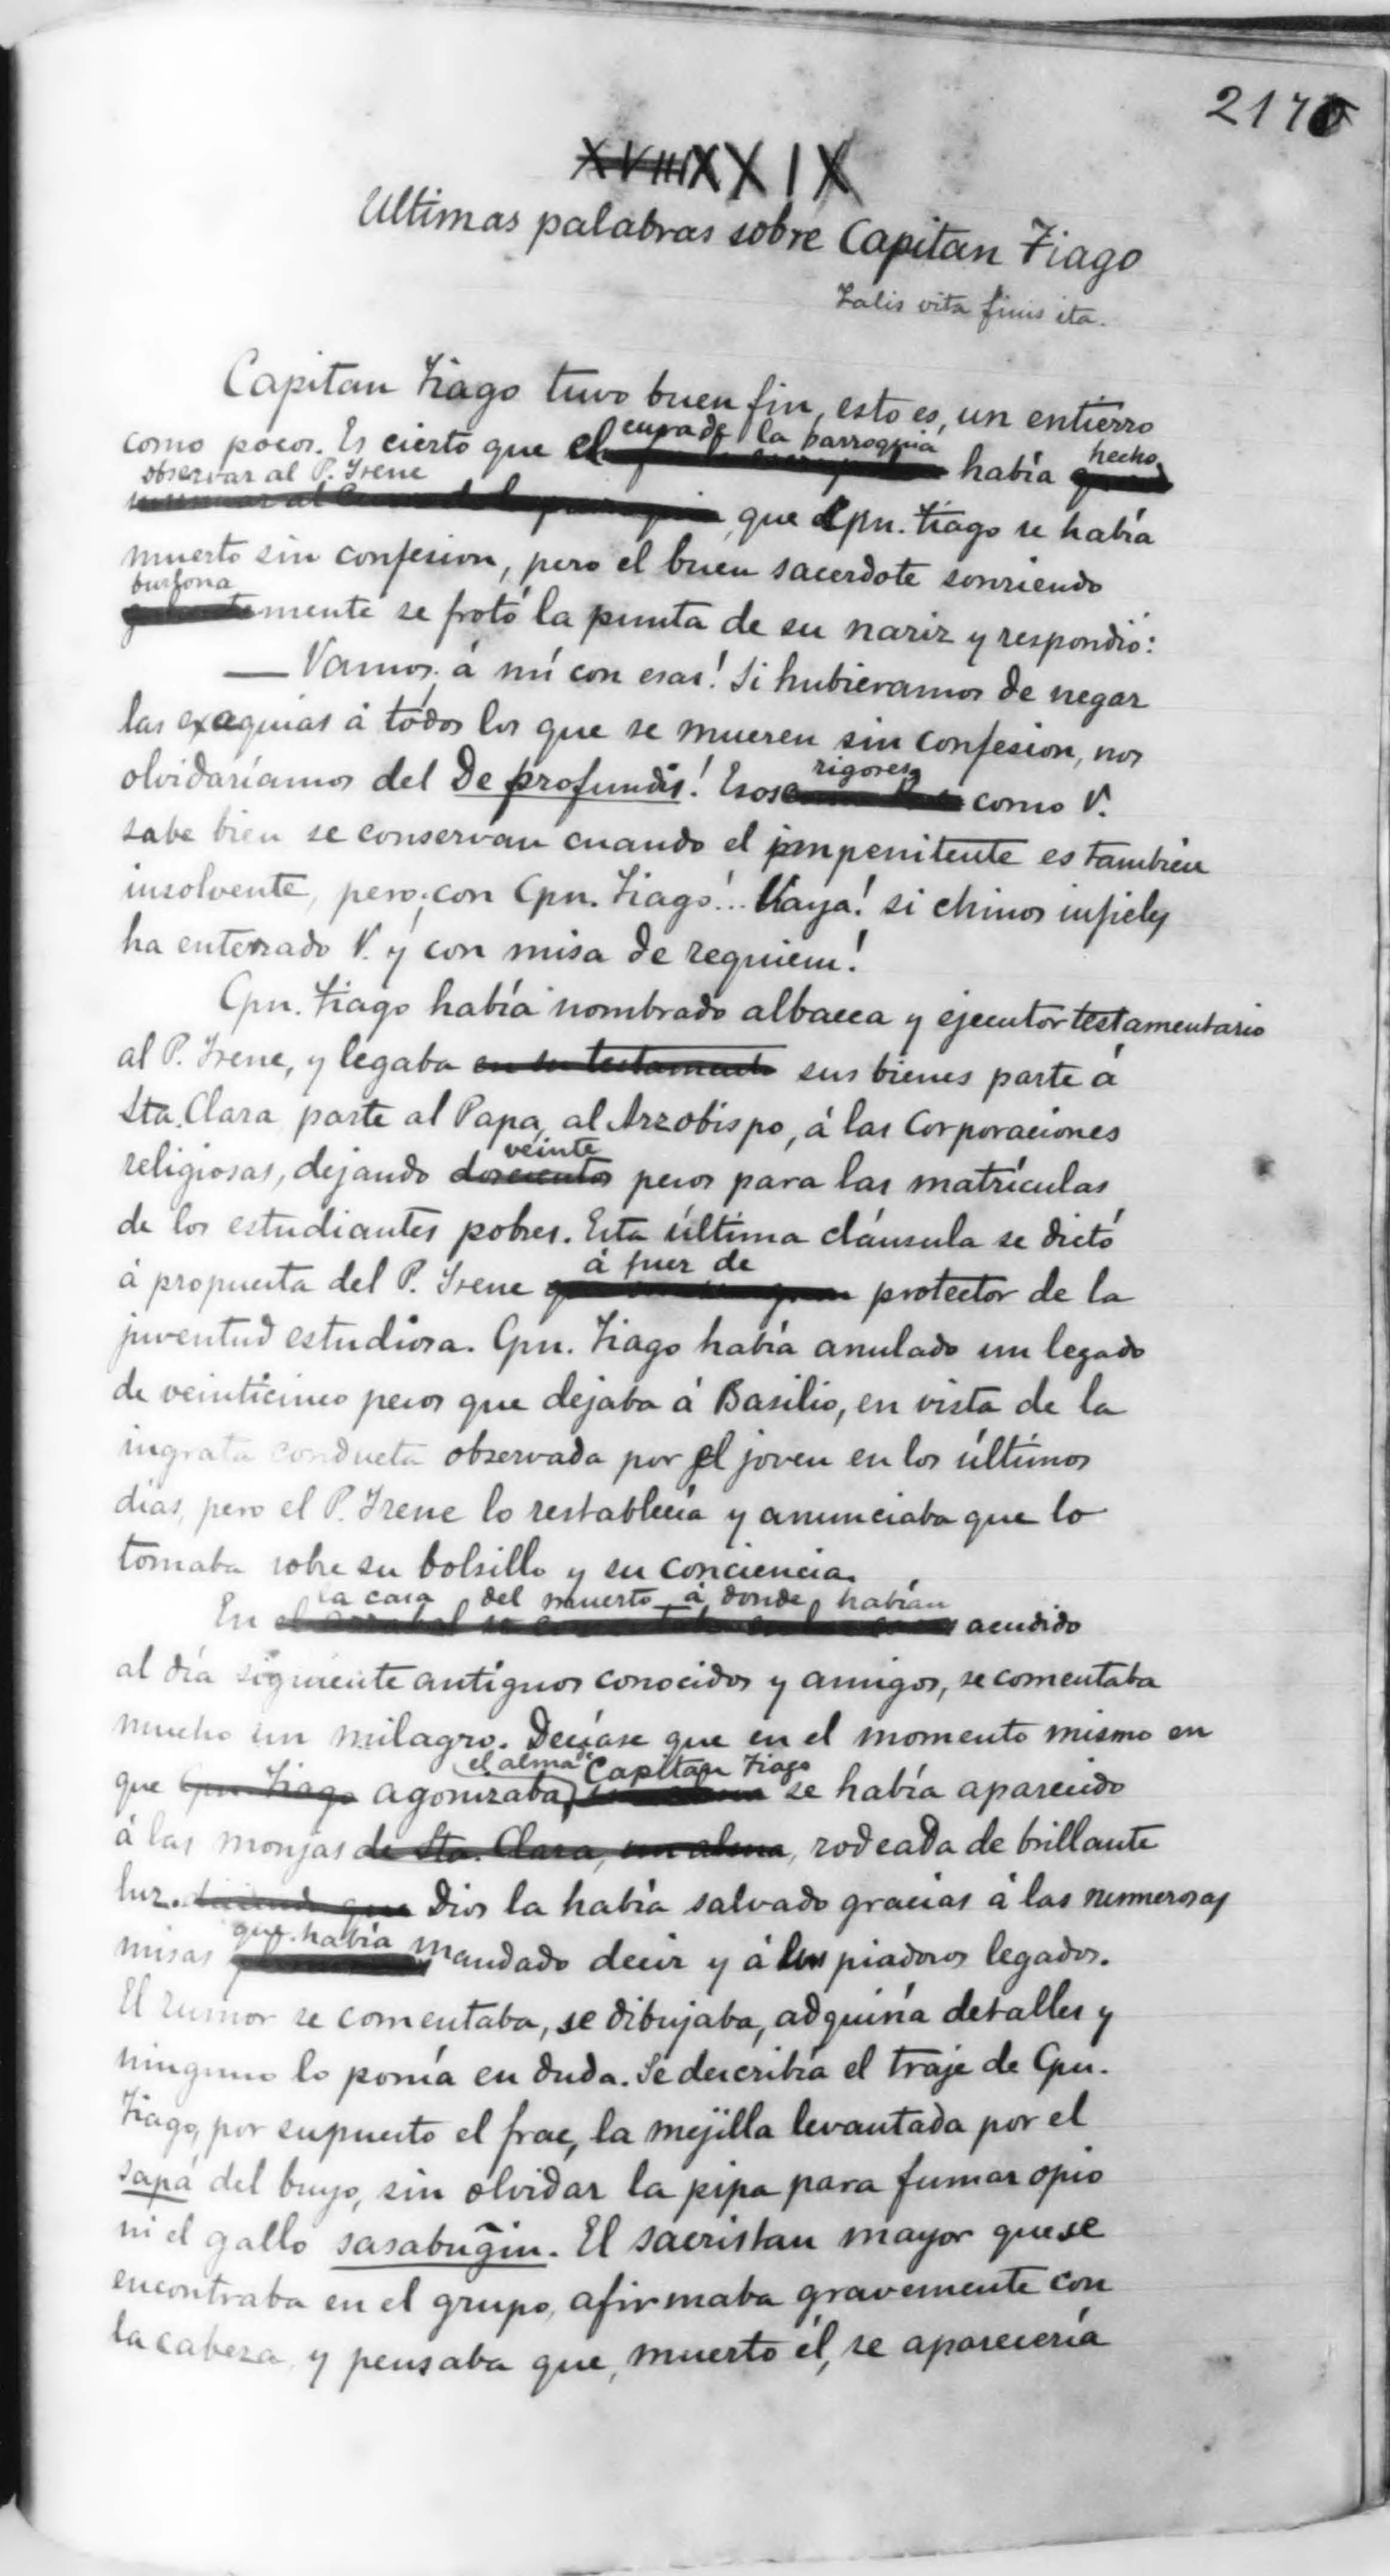 217
XVIII XXIX
Ultimas palabras sobre Capitan Tiago
Talis vita finis ita.
Capitan Tiago tuvo buen fin, esto es, un entierro
como pocos. Es cierto que el cura de la parroquia había hecho
observar al P. Irene, que Cpn. Tiago se había
muerto sin confesion, pero el buen sacerdote sonriendo
burlonamente se frotó la punta de su nariz y respondió:
— Vamos, á mí con esas! Si hubieramos de negar
las exequias á todos los que se mueren sin confesion, nos
olvidaríamos del De profundis! Esos rigores como V.
sabe bien se conservan cuando el impenitente es tambien
insolvente, pero ¡con Cpn. Tiago!.. Vaya! si chinos infieles
ha enterrado V. y con misa de requiem!
Cpn. Tiago había nombrado albacea y ejecutor testamentario
al P. Irene, y legaba en su testamento sus bienes parte á
Sta. Clara parte al Papa, al Arzobispo, á las Corporaciones
religiosas, dejando doscientos veinte pesos para las matrículas
de los estudiantes pobres. Esta última cláusula se dictó
á propuesta del P. Irene á fuer de protector de la
juventud estudiosa. Cpn. Tiago había anulado un legado
de veinticinco pesos que dejaba á Basilio, en vista de la
ingrata conducta observada por el joven en los últimos
días, pero el P. Irene lo restablecía y anunciaba que lo
tomaba sobre su bolsillo y su conciencia.
En la casa del muerto á donde habían acudido
al día siguiente antiguos conocidos y amigos, se comentaba
mucho un milagro. Decíase que en el momento mismo en
que Cpn. Tiago agonizaba, el alma de Capitan Tiago se había aparecido
á las monjas de Sta. Clara, un alma, rodeada de brillante
luz. diciendo que Dios la había salvado gracias á las numerosas
misas que había mandado decir y á los piadosos legados.
El rumor se comentaba, se dibujaba, adquiría detalles y
ninguno lo ponía en duda. Se describía el traje de Cpn.
Tiago, por supuesto el frac, la mejilla levantada por el
sapá del buyo, sin olvidar la pipa para fumar opio
ni el gallo sasabuñgin. El sacristan mayor que se
encontraba en el grupo, afirmaba gravemente con
la cabeza y pensaba que, muerto él, se aparecería